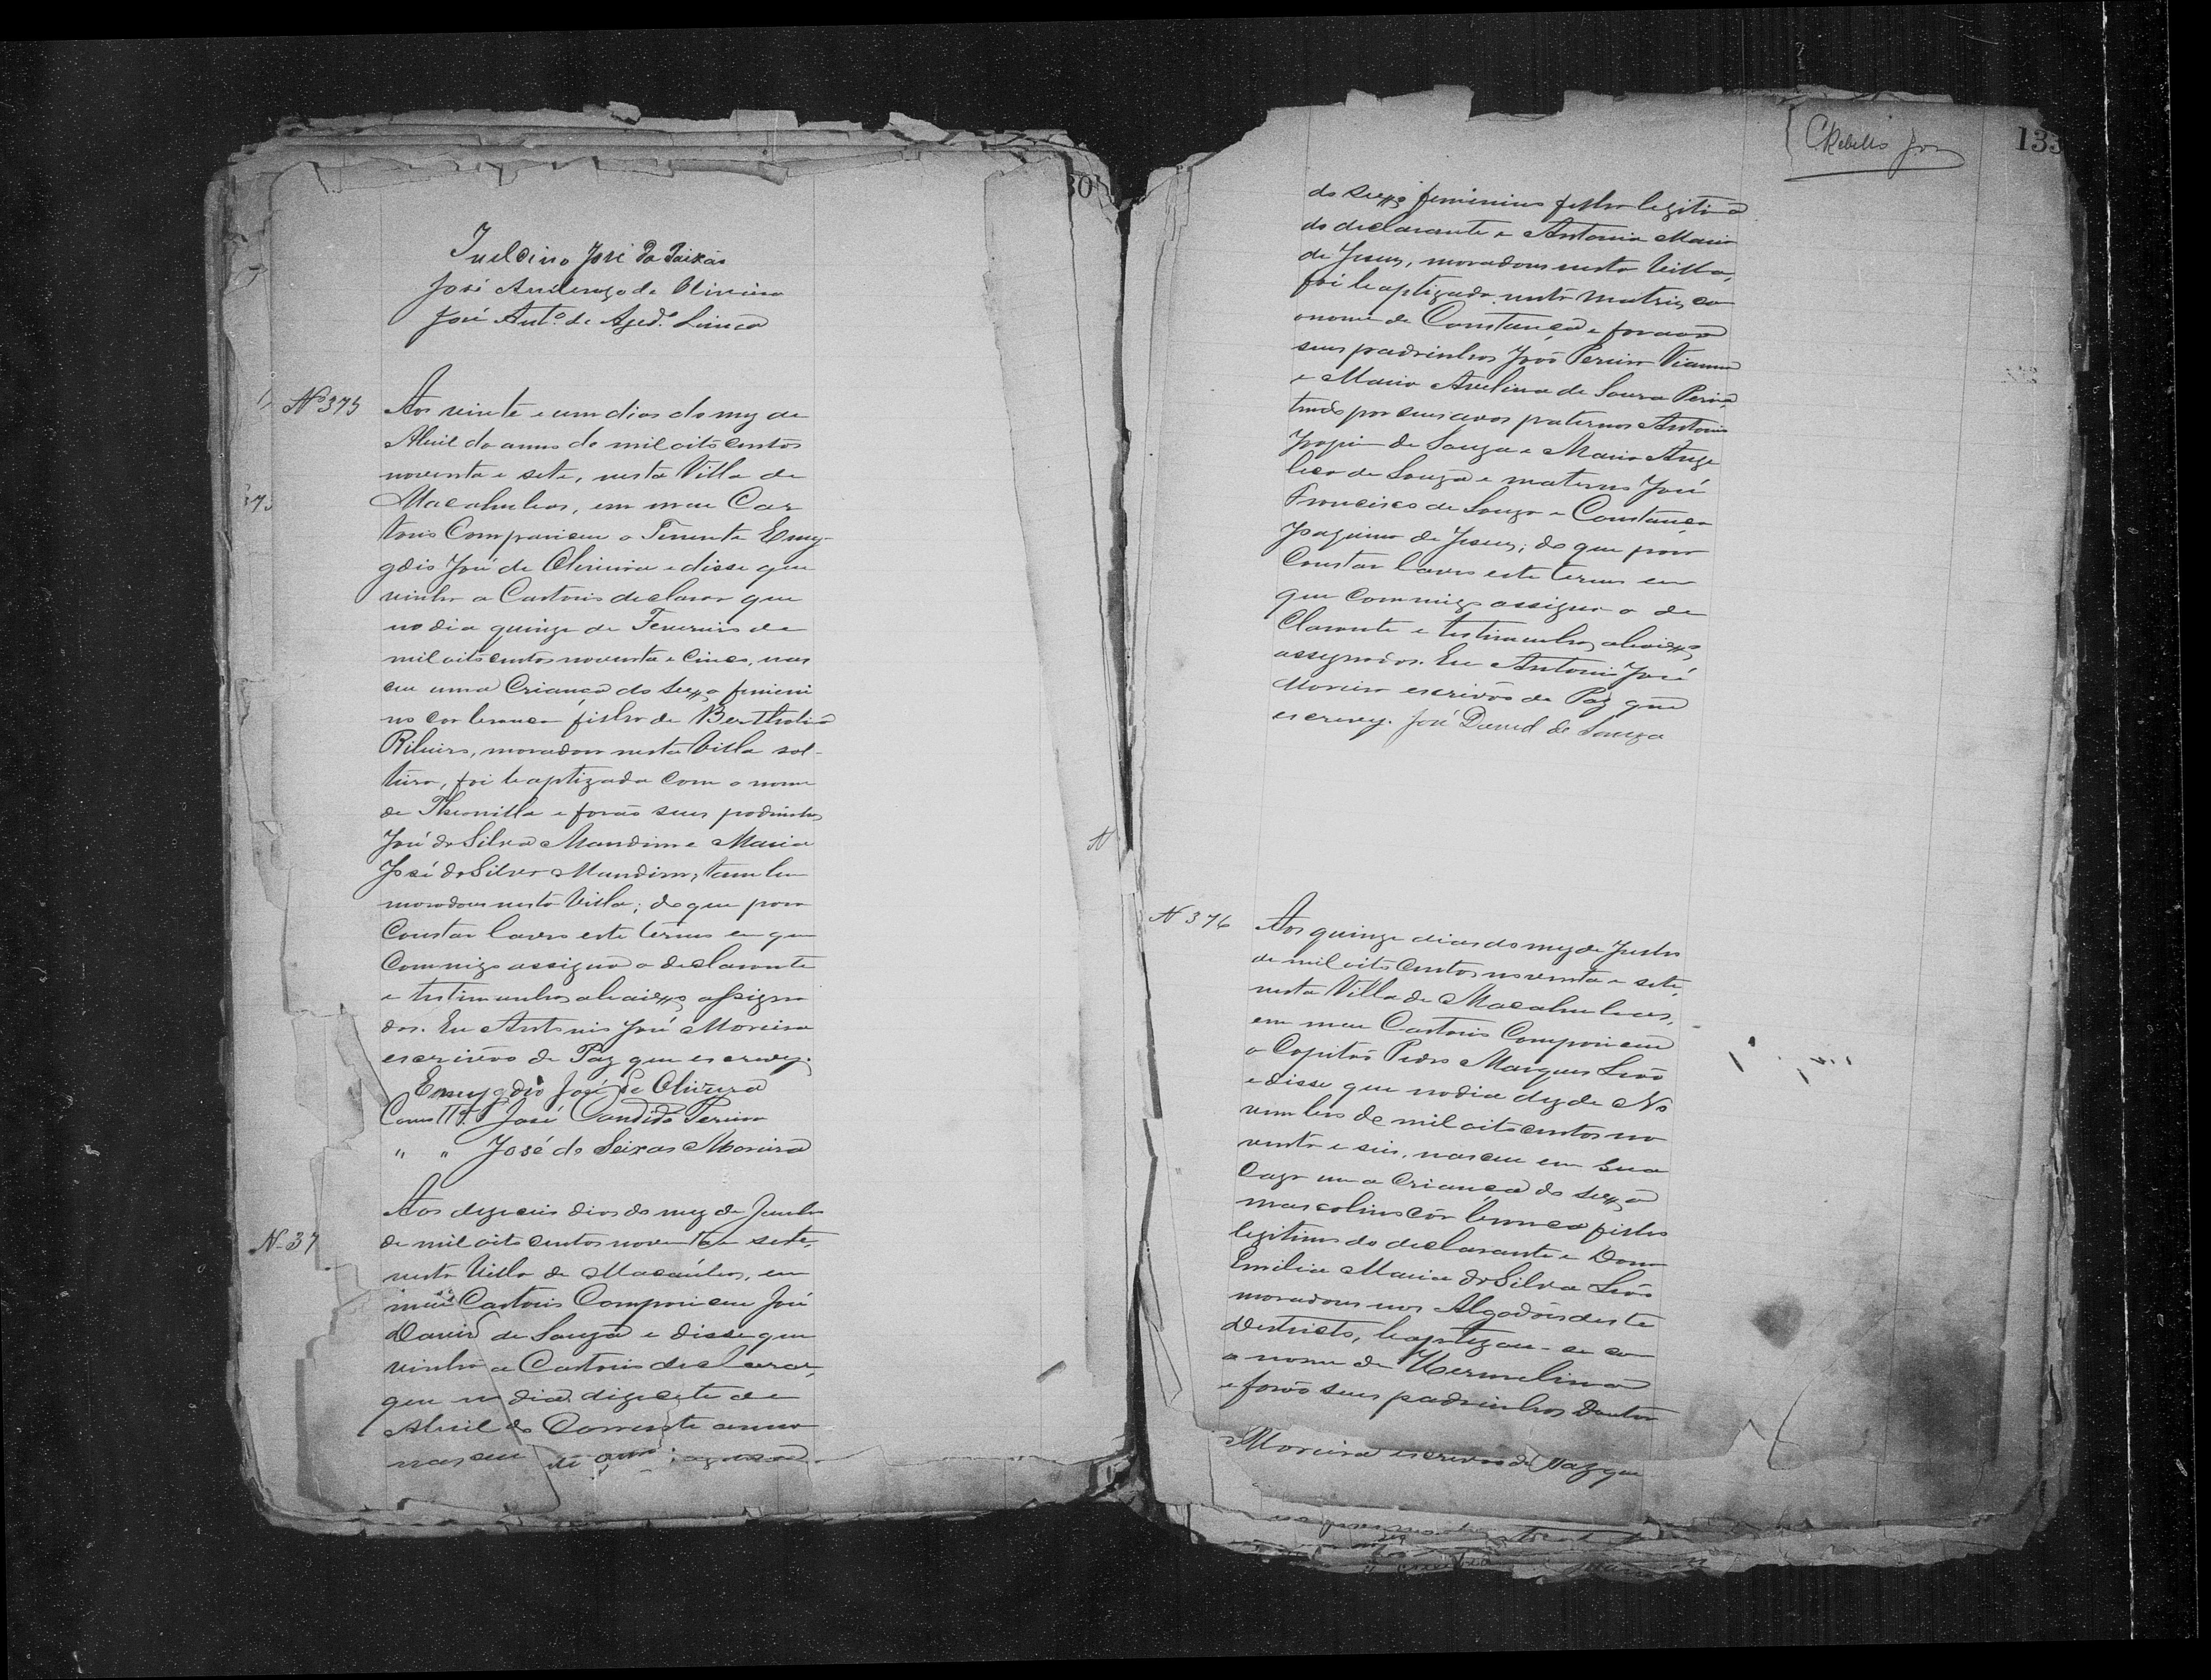 José da Paixão
José de Oliveira
José Antº de Azedº
Nº 375
Aos vinte e um dias do mez de
Abril do anno de mil oito centos
noventa e sete, nesta Villa de
Macahubas, em meu Car
torio Compareceu o Tenente Emy-
gdio José de Oliveira e disse que
vinha a Cartorio declarar que
no dia quinze de Fevereiro de
mil oito centos noventa e cinco, nas
ceu uma Criança do sexo femini
no cor branca filha de Bertholina
Ribeiro, moradora nesta Villa sol-
teira, foi baptizada com o nome
de e forão seus padrinhos
José da Silva Mundim e Maria
José da Silva Mundim, tambem
moradores nesta Villa; do que para
Constar lavro este termo em que
Commigo assigna o declarante
e testimunhas abaixo assigna
dos. Eu Antonio José Moreira
escrivão de Paz que escrevy.
Emygdio José de Oliveira
Como TTª José Candido Pereira
" " José de Seixas Moreira
N. 37
Aos dezeseis dias do mez de Junho
de mil oito centos noventa e sete,
nesta Villa de Macaúbas, em
meu Cartorio Compareceu José
David de Souza e disse que
vinha a Cartorio declarar,
que no dia dezesete de
Abril do Corrente anno
nasceu
30
C Rebello Jor
133
do sexo feminino filha legitima
do declarante e Antonia Maria
de Jesus, moradores nesta Villa,
foi baptizada nesta Matriz co
o nome de Constança e forão
seus padrinhos João Pereira Vianna
e Maria Avelina de Souza Pereira,
tendo por seus avos paternos Antonio
Joaquim de Souza e Maria Ange
lica de Souza e maternos José
Francisco de Souza e Constança
Joaquina de Jesus; do que para
Constar lavro este termo em
que commigo assigna o de
clarante e testimunhas abaixo
assignados. Eu Antonio José
Moreira escrivão de Paz que
escrevy. José David de Souza
N
N 376
Aos quinze dias do mez de Julho
de mil oito centos noventa e sete,
nesta Villa de Macahubas,
em meu Cartorio Compareceu
o Capitão Pedro Marques Leão
e disse que no dia dez de No
vembro de mil oito centos no
venta e seis, nasceu em sua
caza uma criança do sexo
mascolino côr branca filho
legitimo do declarante e Dona
Emilia Maria da Silva Leão
moradores nos Algodões deste
Destricto, baptizou-se com
o nome de Hermelino
e forão seus padrinhos Doutor
Moreira escrivão de Paz que